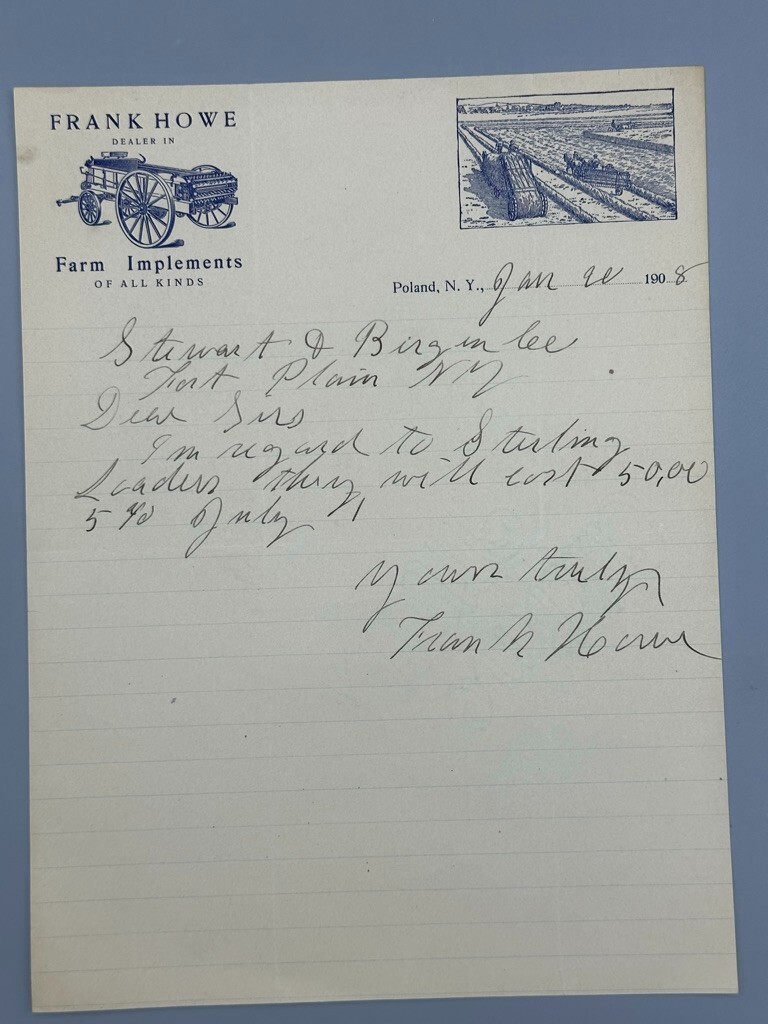 FRANK HOWE
DEALER IN
Farm Implements
OF ALL KINDS
Poland, N. Y., Jan 20 1908
Stewart & Bergen
Fort Plain NY
Dear Sirs
In regard to Sterling
Loaders they will cost 50,00
5 % July 1
Yours truly
Frank Howe